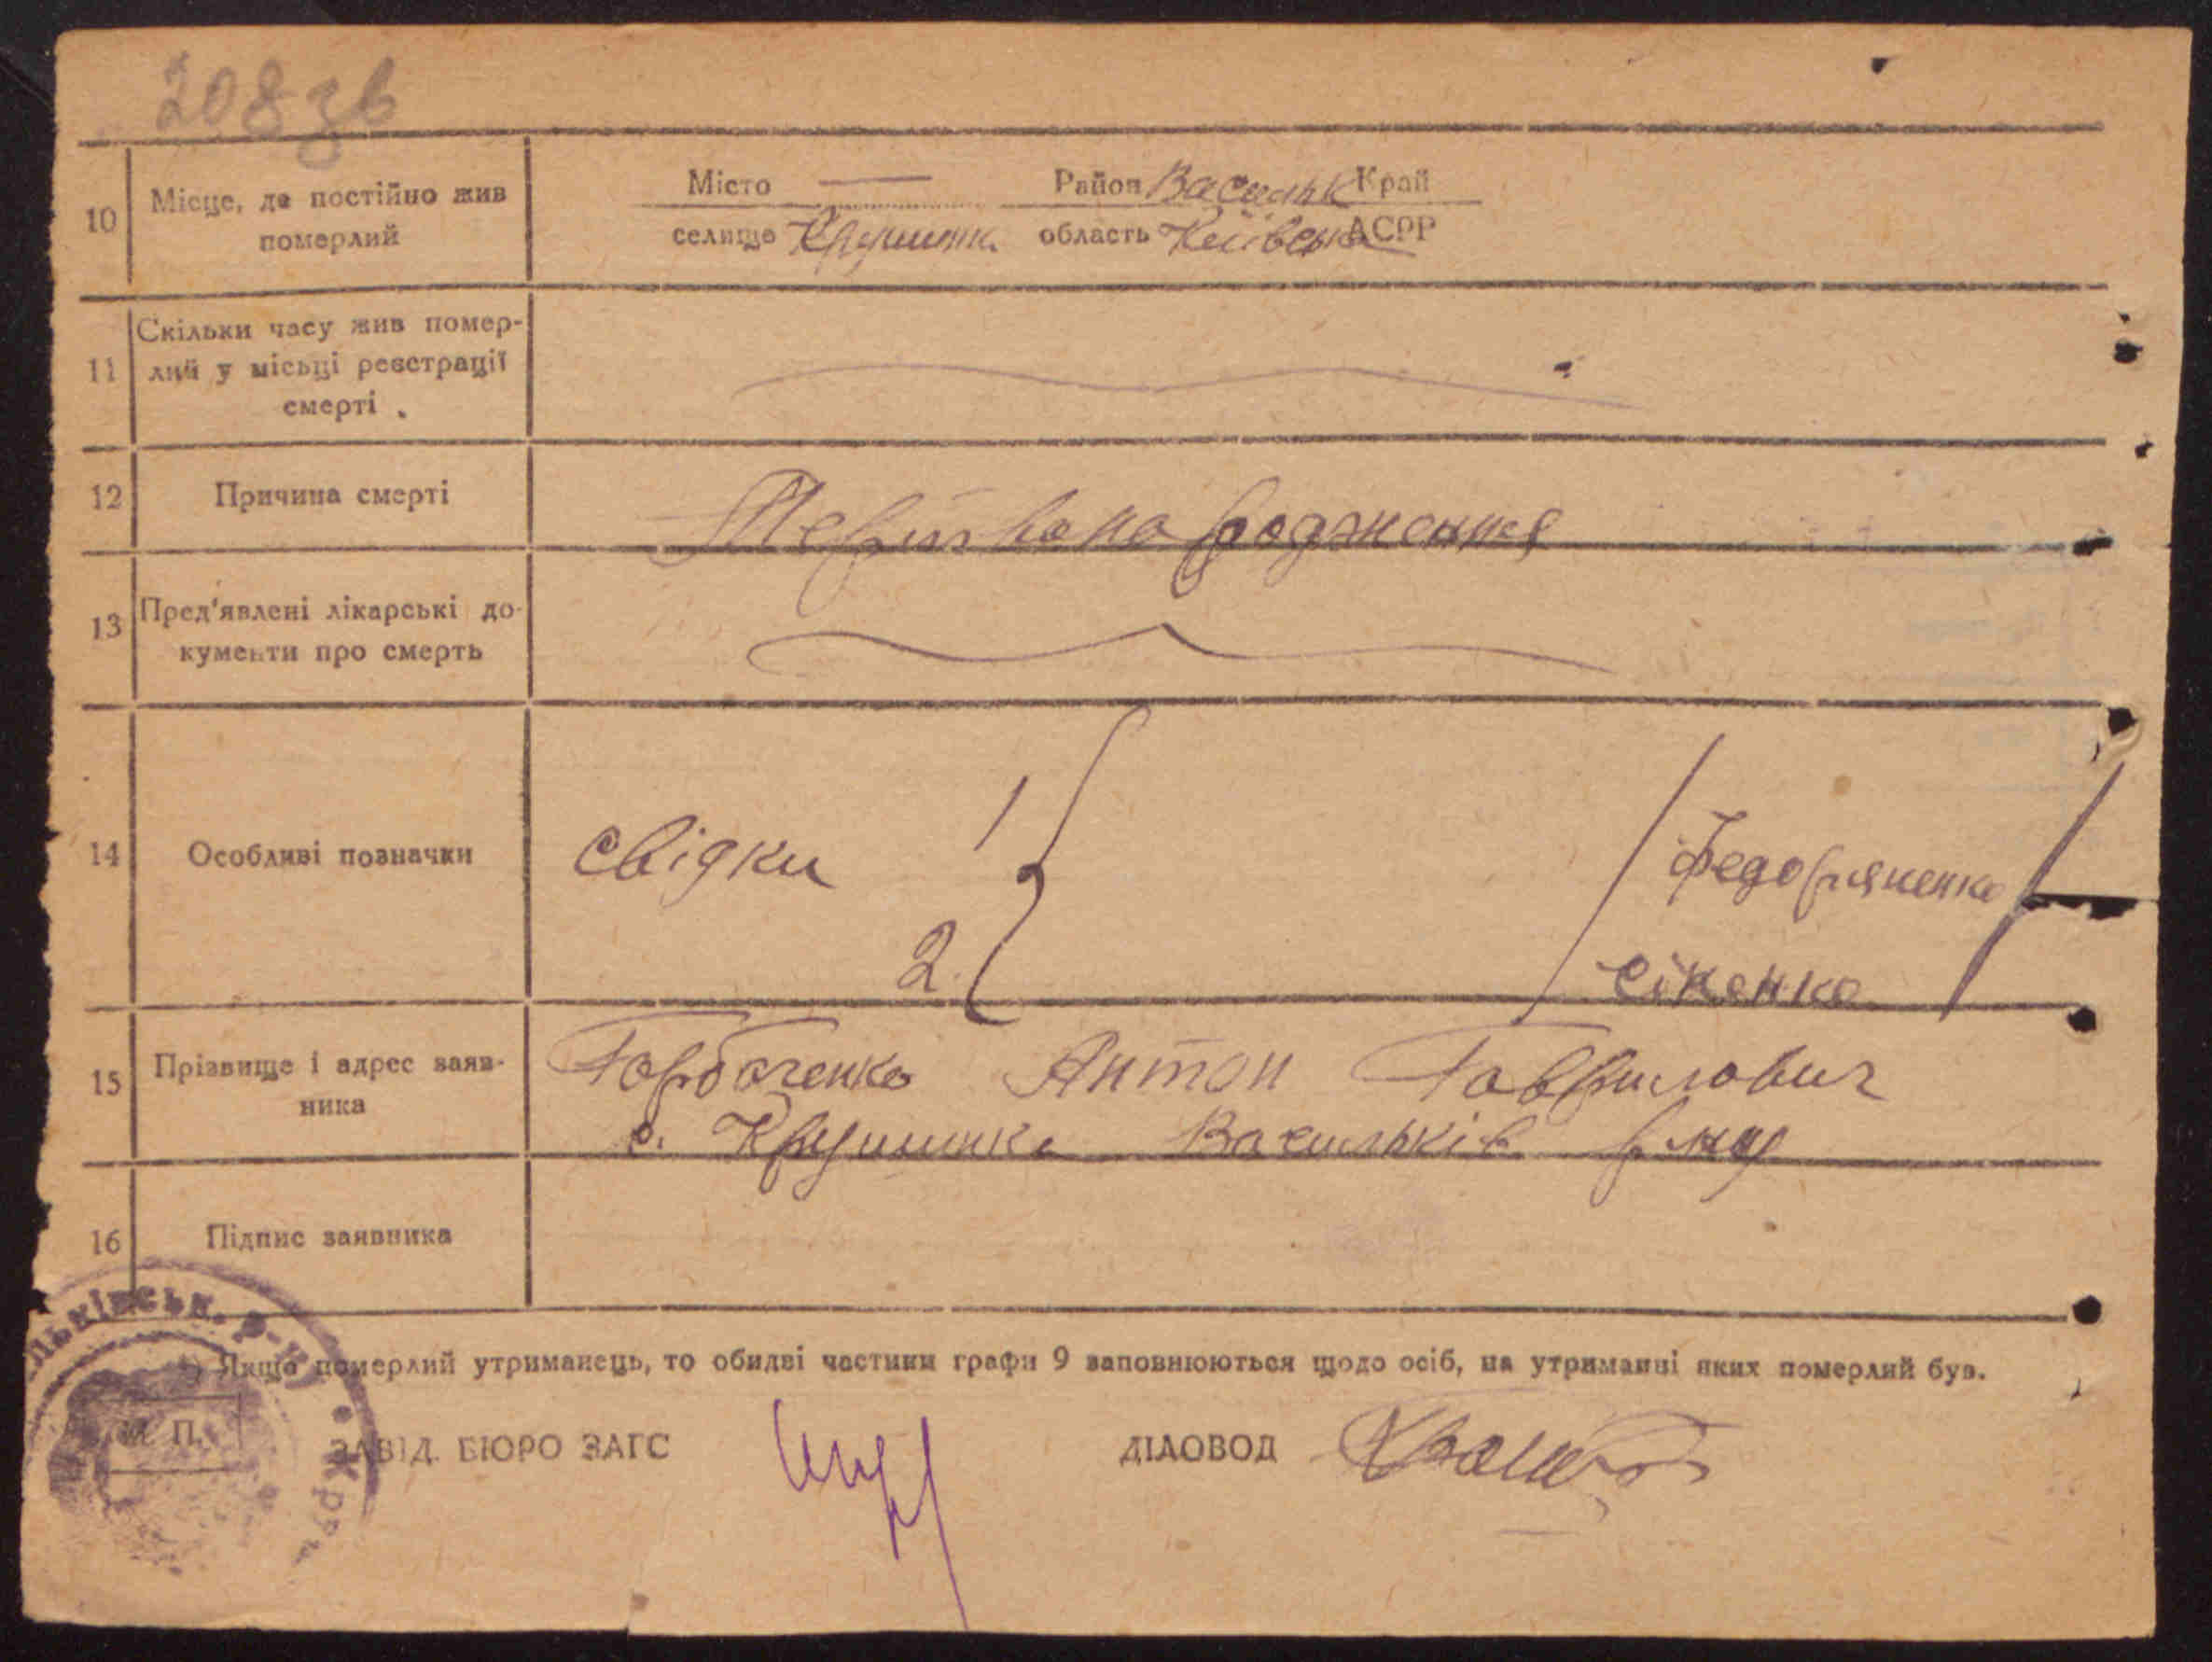 208 зв
10 Місце, де постійно жив померлий
Місто — Район Васильк Край
селище Крушинка область Київська АСРР
11 Скільки часу жив помер-
лий у місці реєстрації
смерті
12 Причина смерті
родження
13 Пред'явлені лікарські до-
кументи про смерть
14 Особливі позначки
свідки 1
2
Сікенко
15 Прізвище і адрес заяв-
ника
Горбаченко Антон Гаврилович
с. Крушинка Васильків р-ну
16 Підпис заявника
*) Якщо померлий утриманець, то обидві частини графи 9 заповнюються щодо осіб, на утриманні яких померлий був.
М. П.
ЗАВІД. БЮРО ЗАГС
ДІЛОВОД